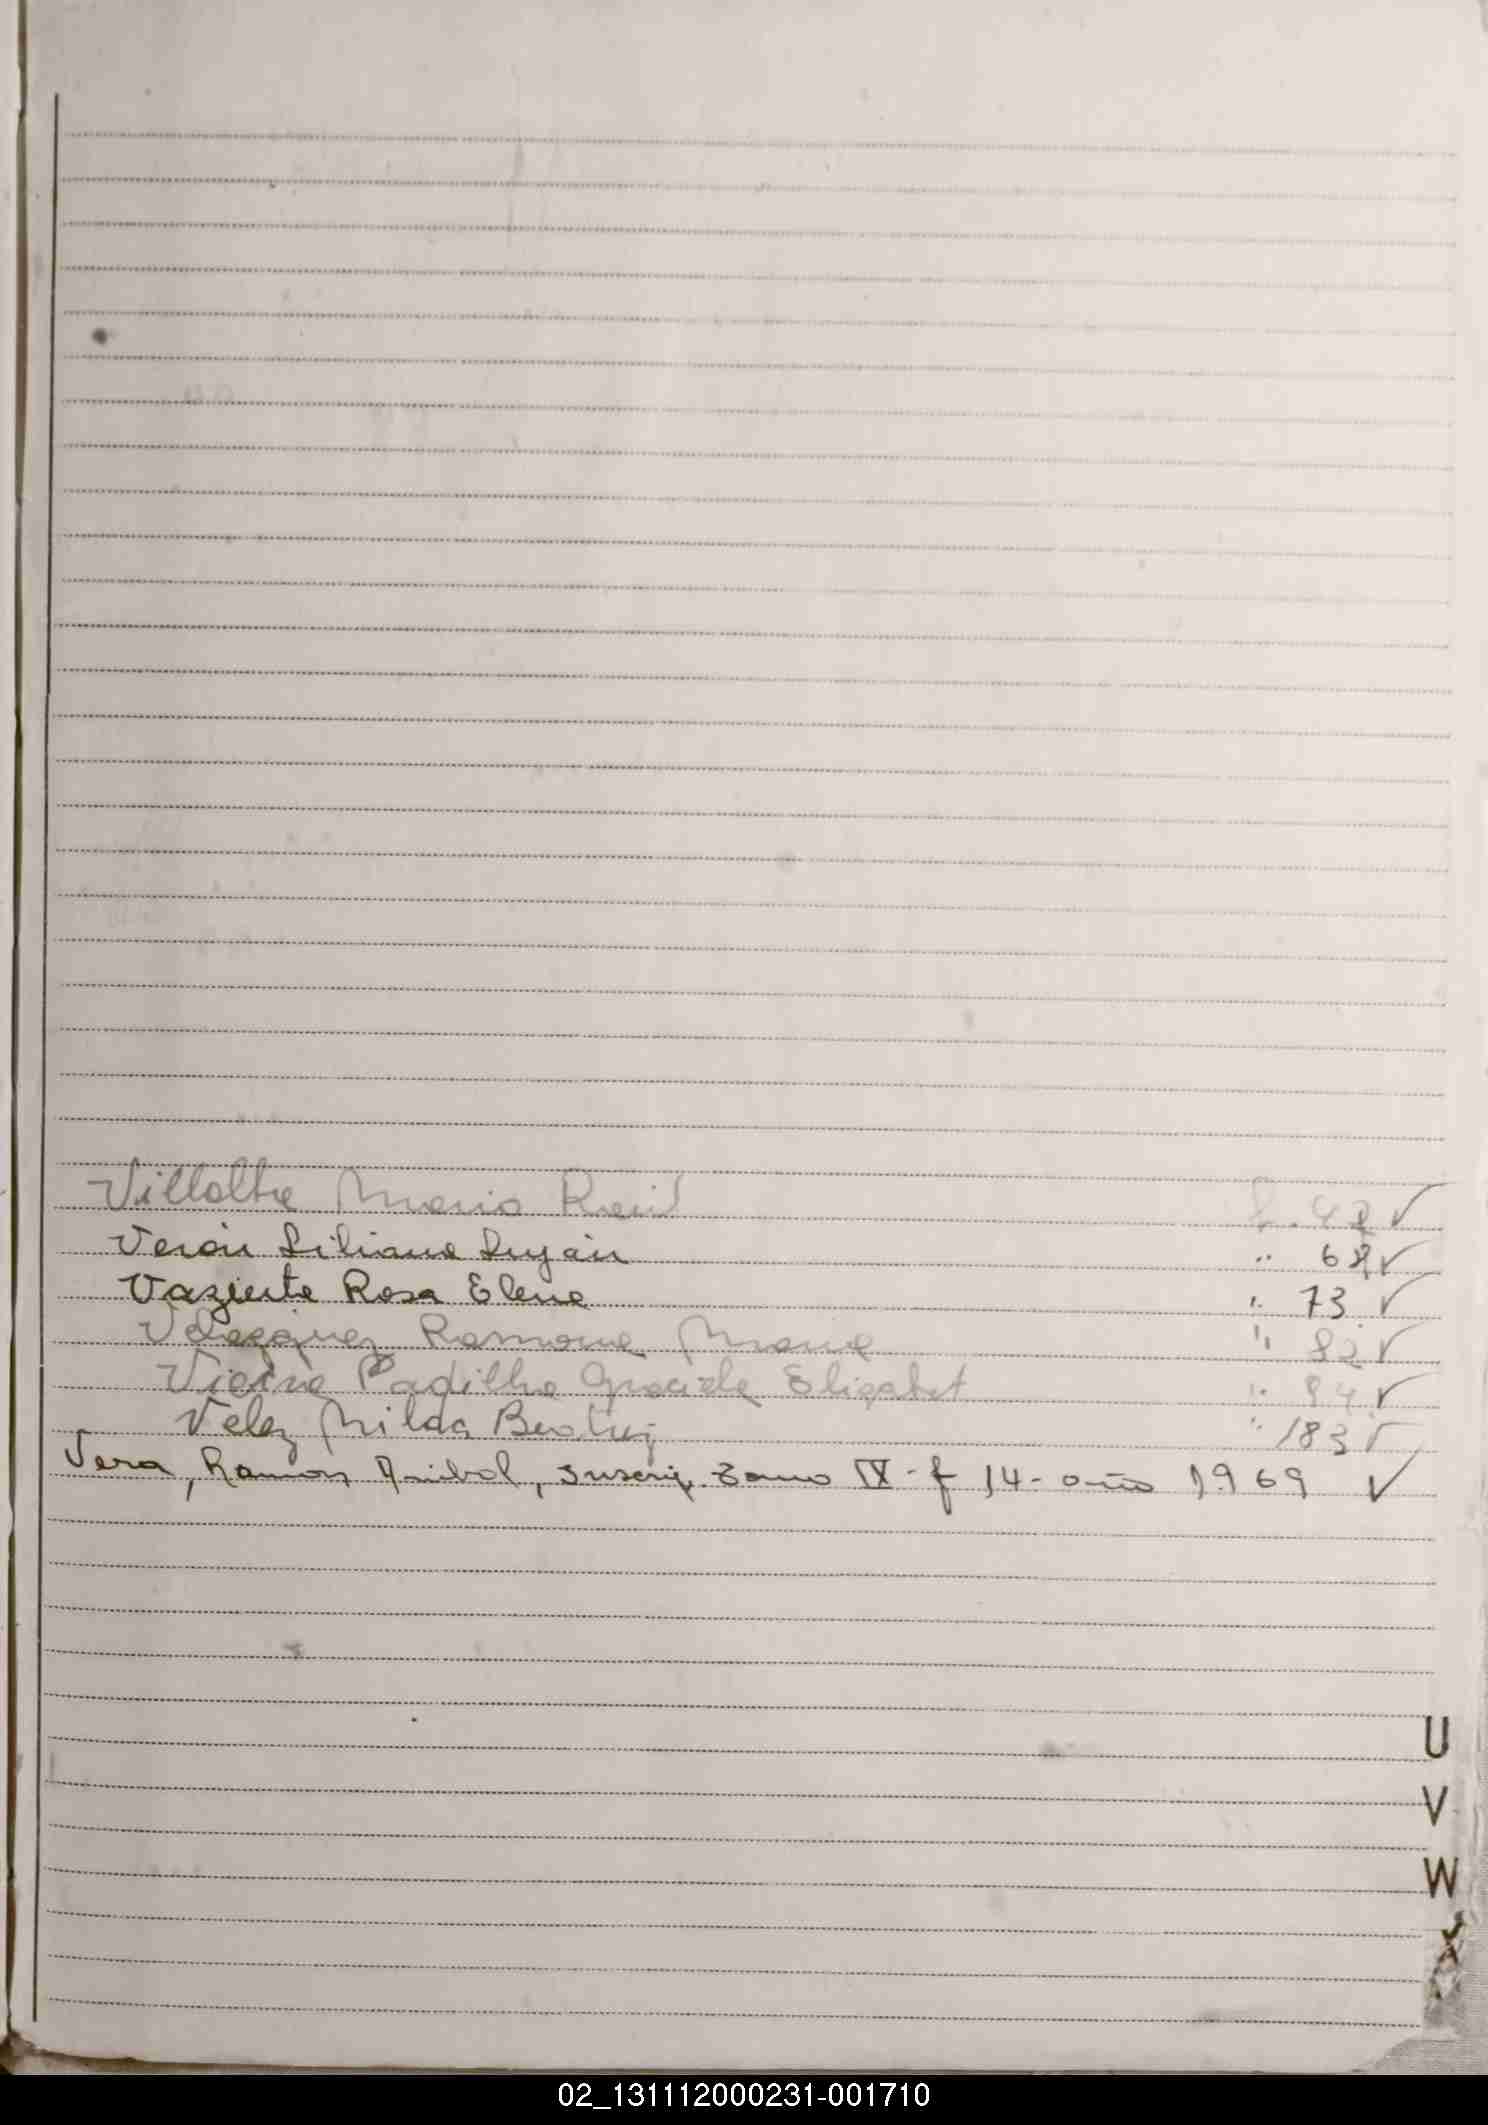 Villalba Mario Raul f. 42 ✓
Verón Liliana Luján " 68 ✓
Vaziente Rosa Elena " 73 ✓
Velazquez Ramona Maria " 82 ✓
Vieira Padilha Graciela Elizabet " 84 ✓
Velez Milda Beatriz " 183 ✓
Vera, Ramon Anibal, Inscrip. Tomo IX - f 14 - año 1969 ✓
U
V
W
02_131112000231-001710